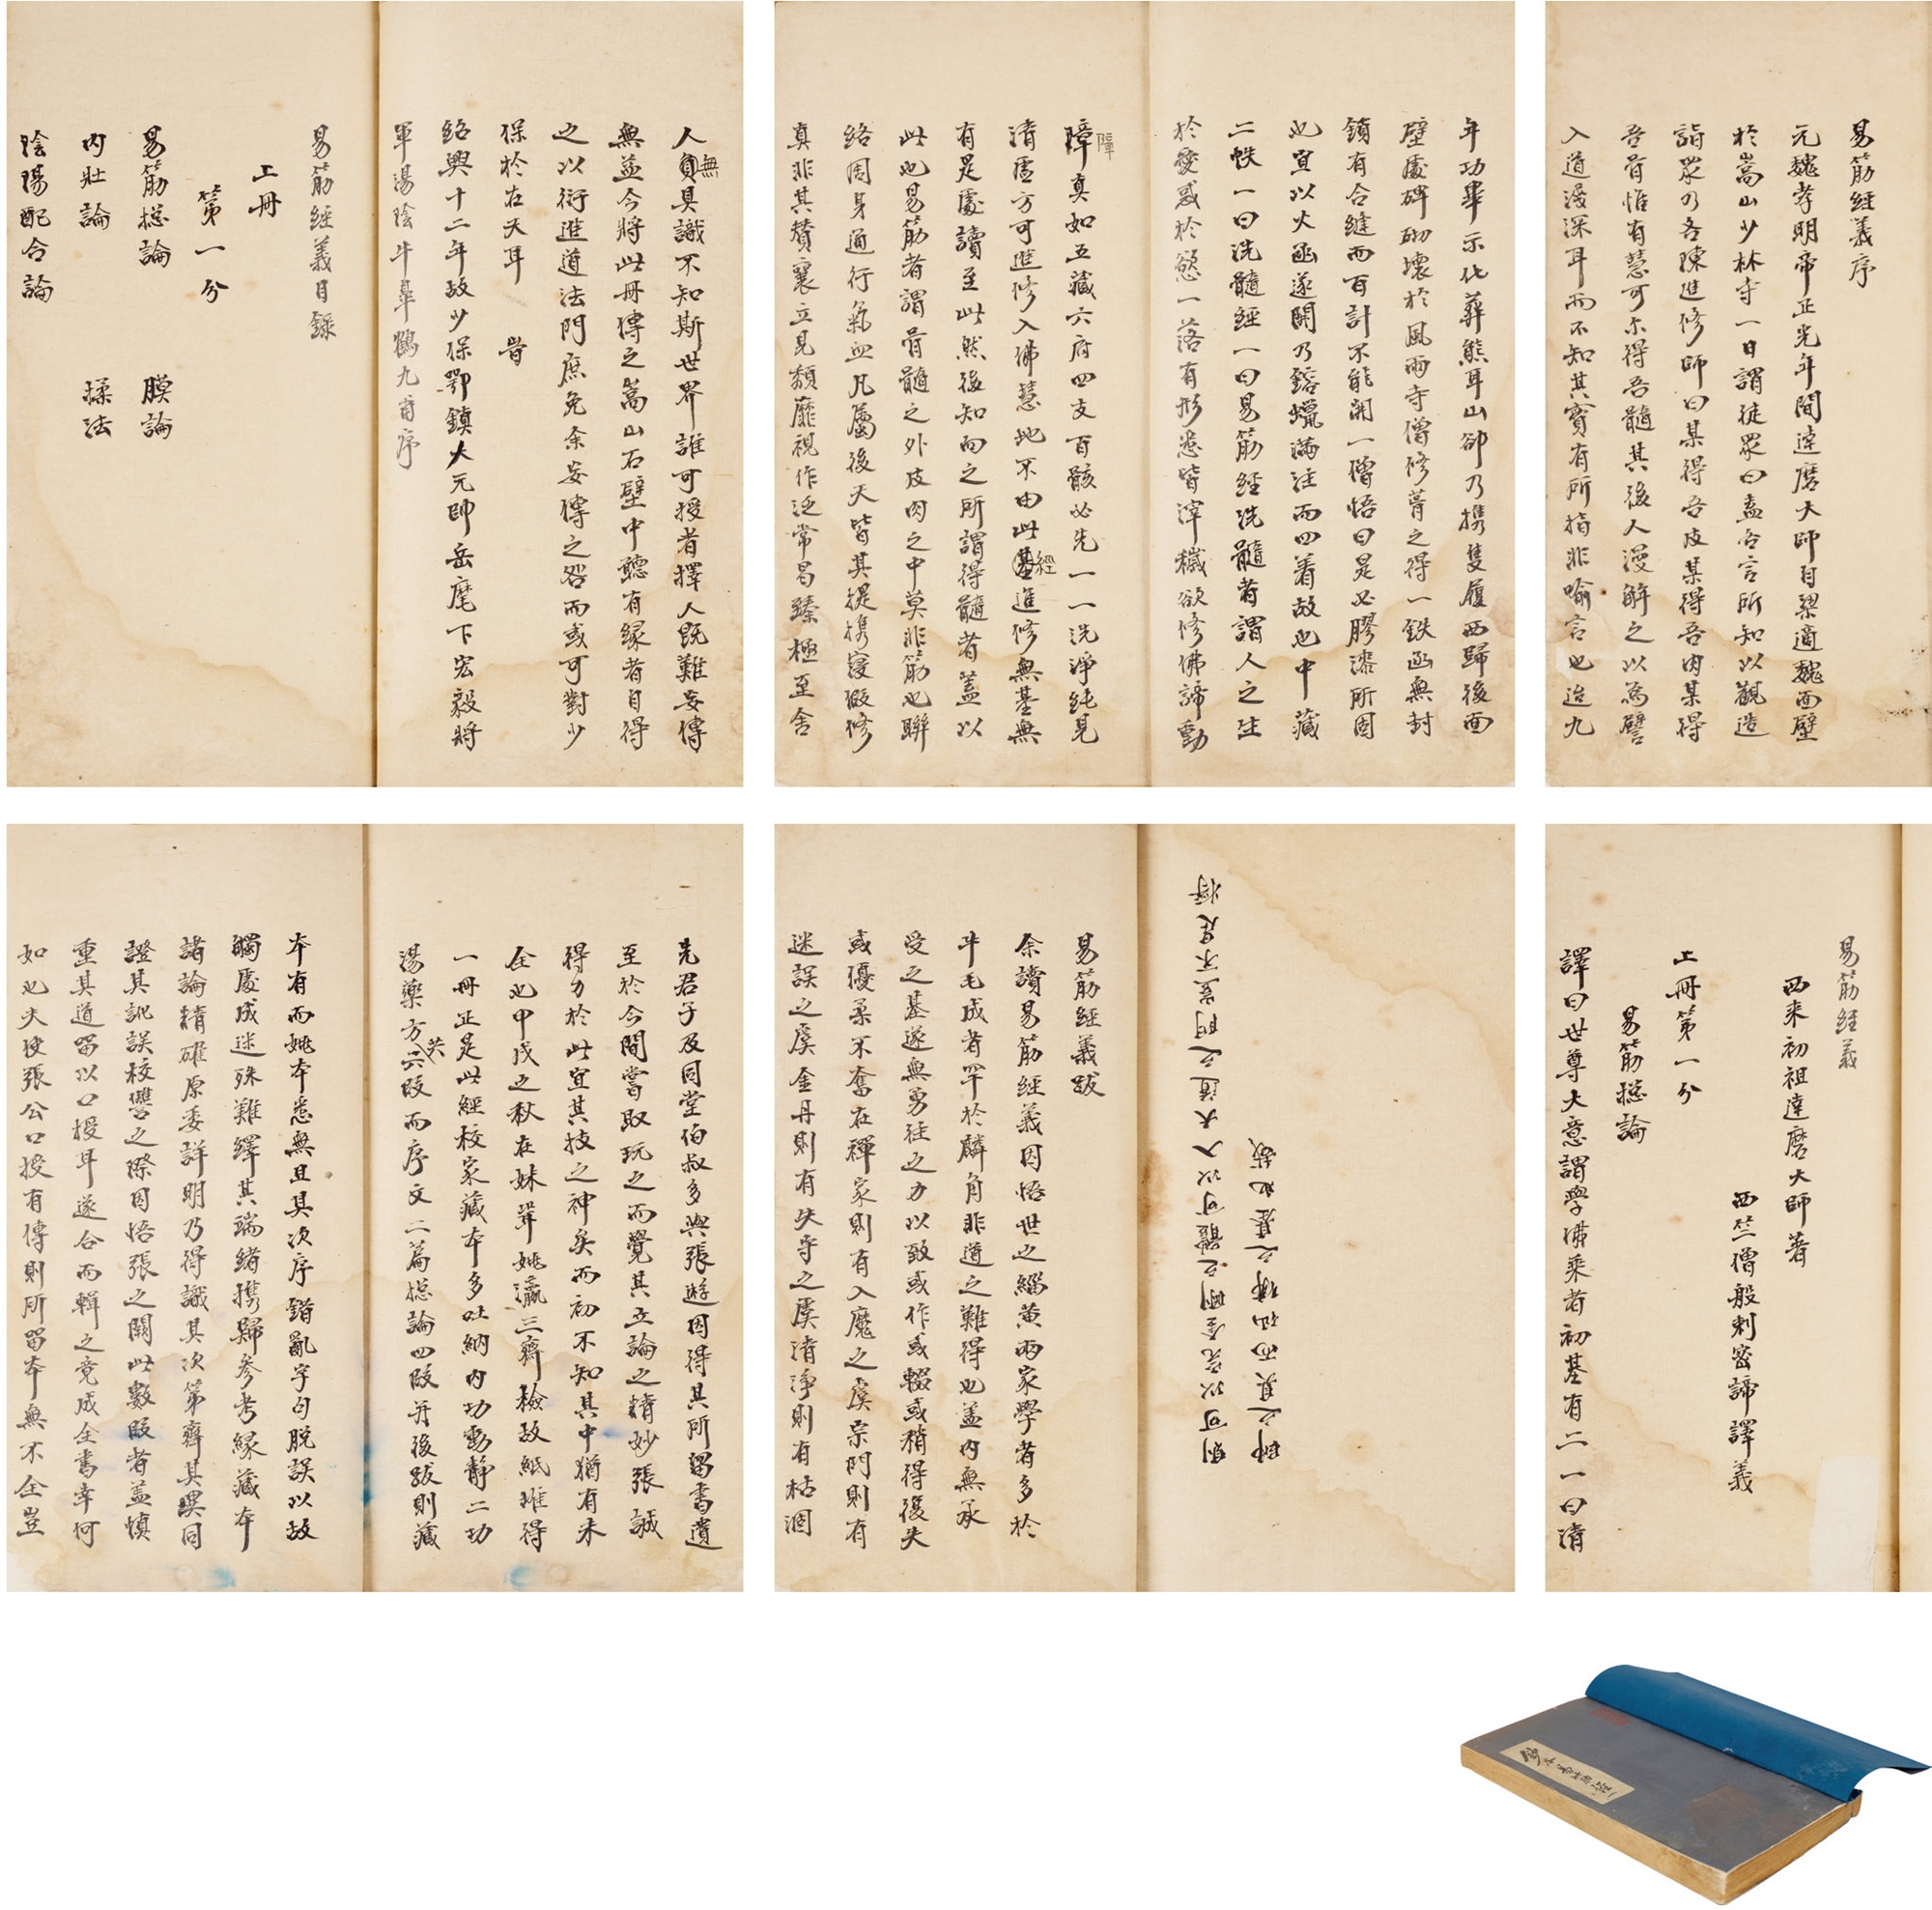 易筋經義序
元魏孝明帝正光年間達磨大師自梁適魏面壁
於嵩山少林寺一日謂徒眾曰盍各言所知以觀造
詣眾乃各陳進修師曰某得吾皮某得吾肉某得
吾骨惟有慧可尓得吾髓其後人漫解之以為譬
入道淺深耳而不知其實有所指非喻言也迨九
年功畢示化葬熊耳山卻乃携隻履西歸後面
壁處碑砌壞於風雨寺僧修葺之得一鉄函無封
鎖有合縫而百計不能開一僧悟曰是必膠漆所固
也宜以火函遂開乃鎔蠟滿注而四着故也中藏
二帙一曰洗髓經一曰易筋經洗髓者謂人之生
於愛惑於慾一落有形悉皆滓穢欲修佛諦動
障真如五藏六府四支百骸必先一一洗淨純見
障
清虛方可進修入佛慧地不由此基進修無基無
經
有是處讀至此然後知向之所謂得髓者蓋以
此也易筋者謂骨髓之外皮肉之中莫非筋也聯
絡周身通行氣血凡屬後天皆其提携寖假修
真非其賛襄立見頹靡視作泛常曷臻極至舍
人負具識不知斯世界誰可授者擇人既難妄傳
無
無益今將此冊傳之嵩山石壁中聽有緣者自得
之以衍進道法門庶免余妄傳之咎而或可對少
保於在天耳　　旹
紹興十二年故少保鄂鎮大元帥岳麾下宏毅將
軍湯陰牛皋鶴九甫序
易筋經義目錄
上冊
第一分
易筋総論　　膜論
內壯論　　揉法
陰陽配合論
易筋經義
西來初祖達磨大師著
西竺僧般剌密諦譯義
上冊第一分
易筋総論
譯曰世尊大意謂學佛乘者初基有二一曰清
則可以完金剛之體可以入大道之門豈不是將
帥之具而仙佛之基也哉
易筋經義跋
余讀易筋經義因悟世之緇黃兩家學者多於
牛毛成者罕於麟角非道之難得也蓋內無承
受之基遂無勇往之力以致或作或輟或稍得復失
或優柔不奮在禪家則有入魔之虞宗門則有
迷誤之虞金丹則有失守之虞清淨則有枯涸
先君子及同堂伯叔多與張遊因得其所留書遺
至於今間嘗取玩之而覺其立論之精妙張誠
得力於此宜其技之神矣而初不知其中猶有未
全也甲戌之秋在妹聟姚瀛三齋檢故紙堆得
一冊正是此經校家藏本多吐納內功動靜二功
湯藥方六段而序文二篇総論四段并後跋則藏
共
本有而姚本悉無且其次序錯亂字句脫誤以故
觸處成迷殊難繹其端緒携歸參考緣藏本
諸論精確原委詳明乃得識其次第齊其異同
證其訛誤校讐之際因悟張之闕此數段者蓋慎
重其道留以口授耳遂合而輯之竟成全書幸何
如也夫使張公口授有傳則所留本無不全豈
鈔本易筋經